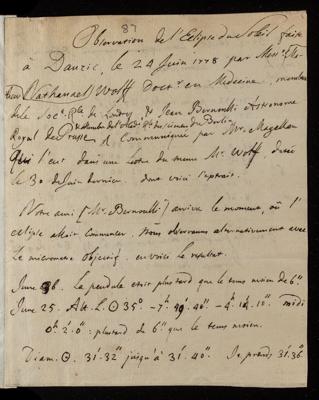 87
Observation de l'Eclipse du Soleil faite
à Danzic, le 24 Juin 1778 par Mess.rs
Nathanael Wolff Doct.r en Medecine, membre
de la Soc. R.le de Londres, & Jean Bernoulli Astronome
Royal de Prusse & Communiquée par Mr. Magellan
Qui l'eut dans une Lettre du meme Mr. Wolff datée
le 30 de Juin dernier, dont voici l'extrait.
Notre ami (Mr. Bernoulli) arriva le moment, où l'
eclipse alloit commencer. Nous observames alternativement avec
le micrometre objectif. en voici le resultat.
June 26. La pendule etoit plus tard que le tems moien de 6".
June 25. Alt. L. ☉ 35° - 7h. 49'. 40" - 4h. 12'. 10" midi
0h. 2'. 0" : plus tard de 6" que le tems moien.
Diam. ☉. 31'. 32" jusqu'à 31'. 40". Je prends 31'. 36"